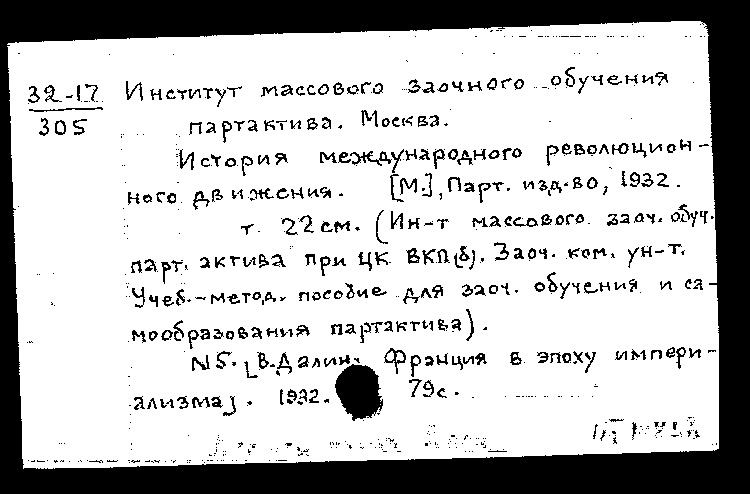 32-17 Институт массового заочного обучения
305 партактива. Москва.
История международного революцион-
ного движения. [М.], Парт. изд-во, 1932.
т. 22 см. (Ин-т массового заоч. обуч.
парт. актива при ЦК ВКП(б). Заоч. ком. ун-т.
Учеб.-метод. пособие для заоч. обучения и са-
мообразования партактива).
N5. [В. Далин. Франция в эпоху импери-
ализма]. 1932. 79с.